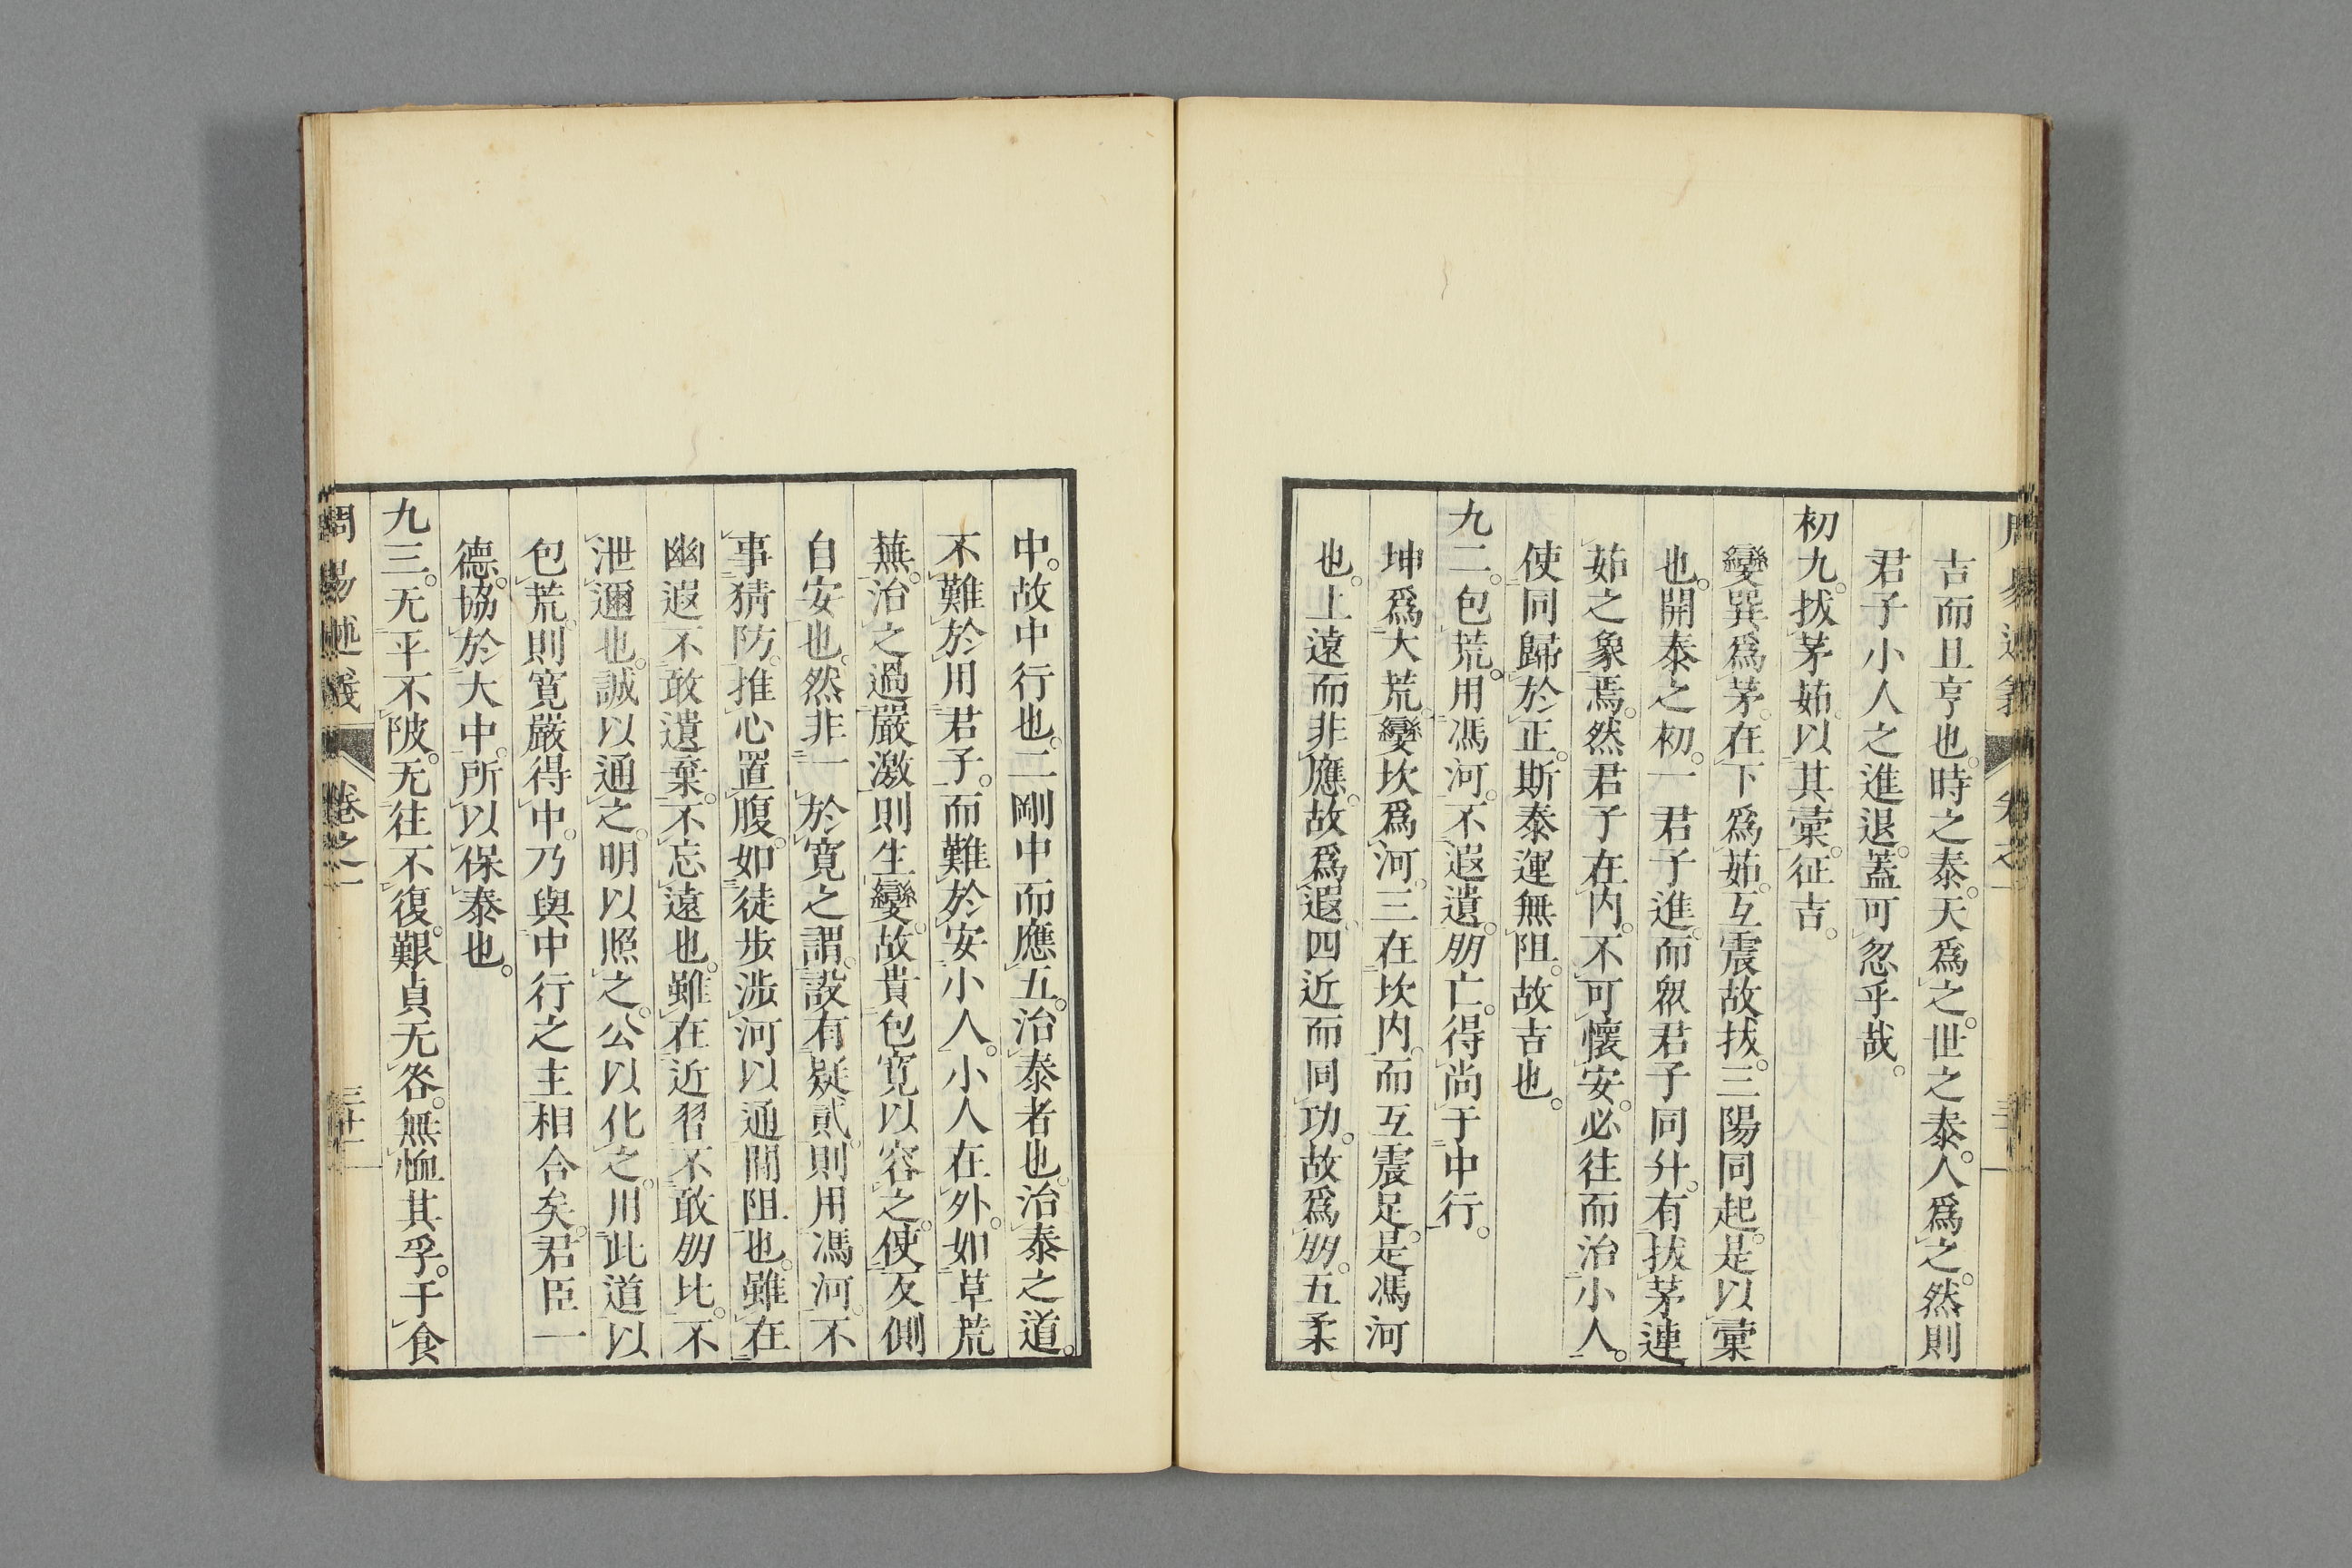 吉而且亨也。時之泰。天爲之。世之泰。人爲之。然則
君子小人之進退。蓋可忽乎哉。
初九。拔茅茹。以其彙。征吉。
變巽爲茅。在下爲茹。互震故拔。三陽同起。是以彙
也。開泰之初。一君子進。而衆君子同升。有拔茅連
茹之象焉。然君子在内。不可懷安。必往而治小人。
使同歸於正。斯泰運無阻。故吉也。
九二。包荒。用馮河。不遐遺。朋亡。得尚于中行。
坤爲大荒。變坎爲河。三在坎内。而互震足。是馮河
也。上遠而非應。故爲遐。四近而同功。故爲朋。五柔
中。故中行也。二剛中而應五。治泰者也。治泰之道。
不難於用君子。而難於安小人。小人在外。如草荒
蕪。治之過嚴激則生變。故貴包寛以容之。使反側
自安也。然非一於寛之謂。設有疑貳。則用馮河。不
事猜防。推心置腹。如徒步涉河以通間阻也。雖在
幽遐不敢遺棄。不忘遠也。雖在近習不敢朋比。不
泄邇也。誠以通之。明以照之。公以化之。用此道以
包荒。則寛嚴得中。乃與中行之主相合矣。君臣一
德。協於大中。所以保泰也。
九三。无平不陂。无往不復。艱貞无咎。無恤其孚。于食
周易述義 卷之一 三十二